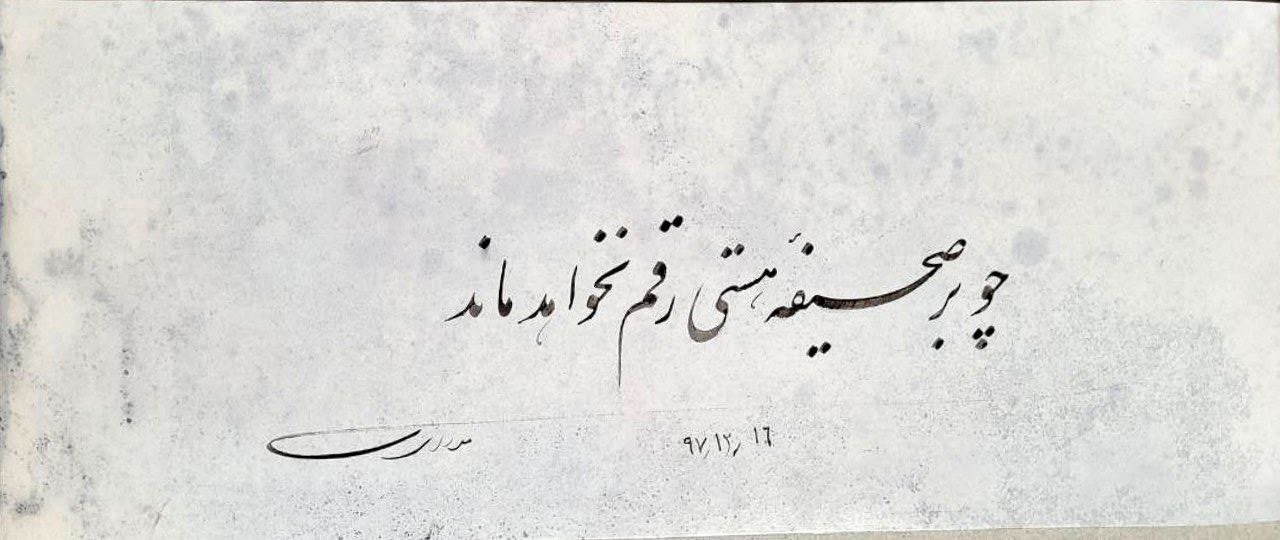 چو بر صحیفهٔ هستی رقم نخواهد ماند
۹۷/۱۲/۱۶